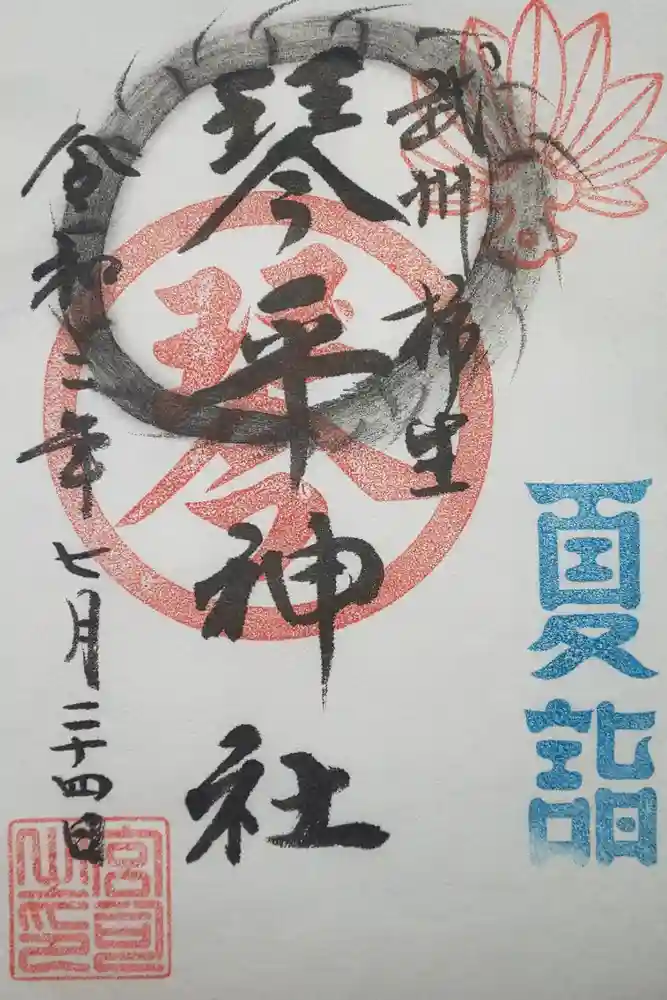 夏詣
武州 柿生
琴平神社
令和二年七月二十四日
琴
宮司之印